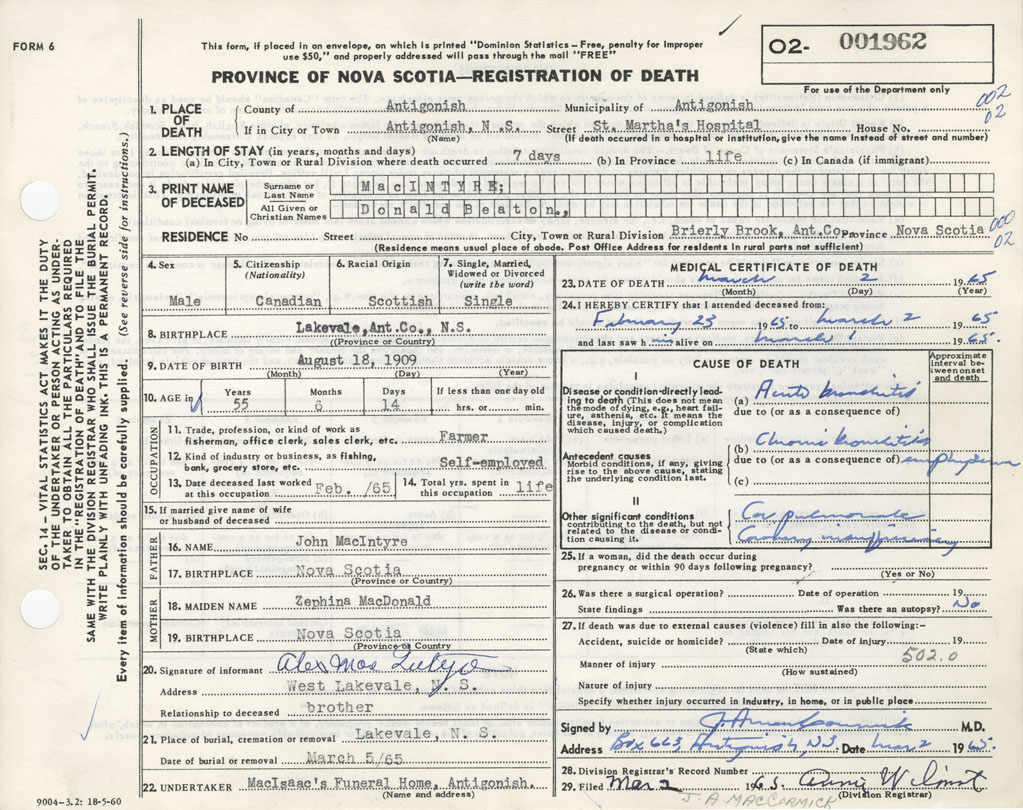 FORM 6
This form, if placed in an envelope, on which is printed "Dominion Statistics – Free, penalty for improper
use $50," and properly addressed will pass through the mail "FREE"
O2- 001962
For use of the Department only
PROVINCE OF NOVA SCOTIA—REGISTRATION OF DEATH
002
02
1. PLACE OF DEATH
County of Antigonish Municipality of Antigonish
If in City or Town Antigonish, N.S. Street St. Martha's Hospital House No.
(Name) (If death occurred in a hospital or institution, give the name instead of street and number)
2. LENGTH OF STAY (in years, months and days)
(a) In City, Town or Rural Division where death occurred 7 days (b) In Province life (c) In Canada (if immigrant)
3. PRINT NAME OF DECEASED
Surname or Last Name MacINTYRE;
All Given or Christian Names Donald Beaton.,
000
02
RESIDENCE No Street City, Town or Rural Division Brierly Brook, Ant.Co Province Nova Scotia
(Residence means usual place of abode. Post Office Address for residents in rural parts not sufficient)
4. Sex Male
5. Citizenship (Nationality) Canadian
6. Racial Origin Scottish
7. Single, Married, Widowed or Divorced (write the word) Single
8. BIRTHPLACE Lakevale, Ant.Co., N.S.
(Province or Country)
9. DATE OF BIRTH August 18, 1909
(Month) (Day) (Year)
10. AGE in Years 55 Months 6 Days 14 If less than one day old hrs. or min.
OCCUPATION
11. Trade, profession, or kind of work as fisherman, office clerk, sales clerk, etc. Farmer
12. Kind of industry or business, as fishing, bank, grocery store, etc. Self-employed
13. Date deceased last worked at this occupation Feb. /65
14. Total yrs. spent in this occupation life
15. If married give name of wife or husband of deceased
FATHER
16. NAME John MacIntyre
17. BIRTHPLACE Nova Scotia
(Province or Country)
MOTHER
18. MAIDEN NAME Zephina MacDonald
19. BIRTHPLACE Nova Scotia
(Province or Country)
20. Signature of informant Alex
Address West Lakevale, N. S.
Relationship to deceased brother
21. Place of burial, cremation or removal Lakevale, N. S.
Date of burial or removal March 5/65
22. UNDERTAKER MacIsaac's Funeral Home, Antigonish.
(Name and address)
9004—3.2: 18-5-60
MEDICAL CERTIFICATE OF DEATH
23. DATE OF DEATH March 2 1965
(Month) (Day) (Year)
24. I HEREBY CERTIFY that I attended deceased from:
February 23 1965 to March 2 1965
and last saw him alive on March 1 1965.
CAUSE OF DEATH
Approximate interval between onset and death
I
Disease or condition directly leading to death (This does not mean the mode of dying, e.g., heart failure, asthenia, etc. It means the disease, injury, or complication which caused death.)
(a) Acute bronchitis
due to (or as a consequence of)
Antecedent causes
Morbid conditions, if any, giving rise to the above cause, stating the underlying condition last.
(b) Chronic bronchitis
due to (or as a consequence of) emphysema
(c)
II
Other significant conditions contributing to the death, but not related to the disease or condition causing it.
Cor pulmonale
Coronary insufficiency
25. If a woman, did the death occur during
pregnancy or within 90 days following pregnancy?
(Yes or No)
26. Was there a surgical operation? Date of operation 19
State findings Was there an autopsy? No
27. If death was due to external causes (violence) fill in also the following:-
Accident, suicide or homicide? Date of injury 19
(State which) 502.0
Manner of injury
(How sustained)
Nature of injury
Specify whether injury occurred in industry, in home, or in public place
Signed by M.D.
Address Box 663, Antigonish, NS. Date Mar 2 1965.
28. Division Registrar's Record Number
29. Filed Mar 2 1965.
(Division Registrar)
J. A. MACCORMICK
SEC. 14. VITAL STATISTICS ACT MAKES IT THE DUTY
OF THE UNDERTAKER OR PERSON ACTING AS UNDER-
TAKER TO OBTAIN ALL THE PARTICULARS REQUIRED
IN THE "REGISTRATION OF DEATH" AND TO FILE THE
SAME WITH THE DIVISION REGISTRAR WHO SHALL ISSUE THE BURIAL PERMIT.
WRITE PLAINLY WITH UNFADING INK. THIS IS A PERMANENT RECORD.
Every item of information should be carefully supplied. (See reverse side for instructions.)